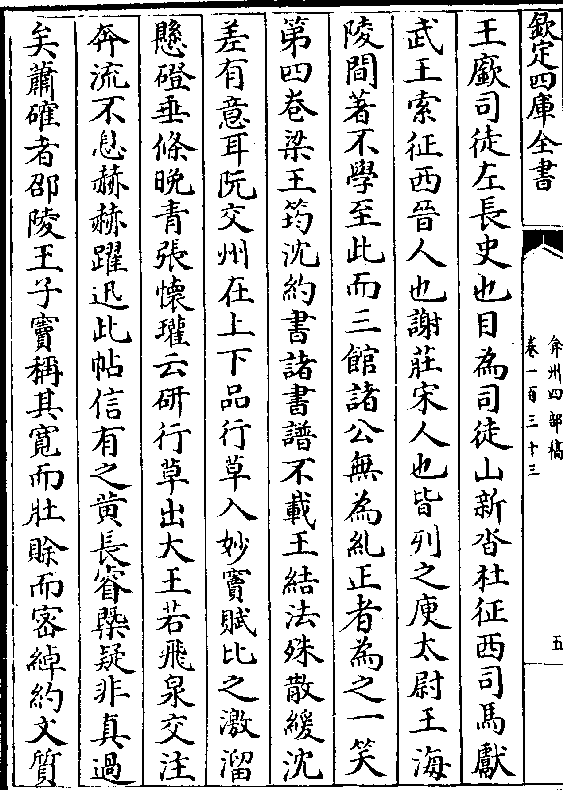 欽定四庫全書
弇州四部稿
卷一百三十三
五
王廞司徒左長史也目為司徒山新沓杜征西司馬獻
武王索征西晉人也謝莊宋人也皆列之庾太尉王海
陵間著不學至此而三館諸公無為糺正者為之一笑
第四卷梁王筠沈約書諸書譜不載王結法殊散緩沈
差有意耳阮交州在上下品行草入妙竇賦比之激溜
懸磴垂條晚青張懷瓘云研行草出大王若飛泉交注
奔流不息赫赫躍迅此帖信有之黄長睿槩疑非真過
矣蕭確者邵陵王子竇稱其寛而壯賖而宻綽約文質